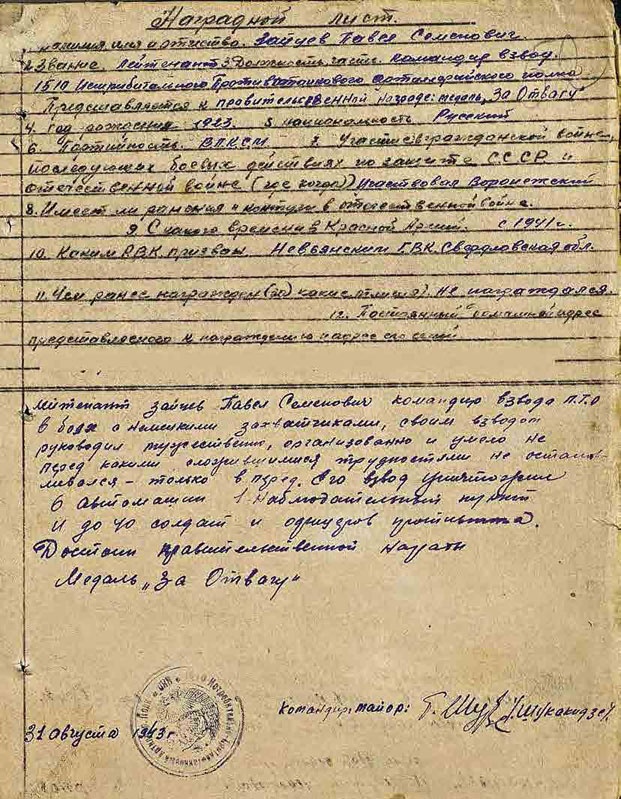 Наградной лист.
имя и отчество. Зайцев Павел Семенович.
2. Звание. Лейтенант 3. Должность, часть. Командир взвод.
1510 Истрибительного Противотанкового артиллерийского полка
Представляется к правительственной награде: медаль „За Отвагу"
4. год рождения. 1923. 5. национальность Русский
6. Партийность. ВЛКСМ 7. Участие в гражданской войне,
последующих боевых действиях по защите СССР и
отечественной войне (где когда) Участвовал Воронежский
8. Имеет ли ранения и контузии в отечественной войне.
9. С какого времени в Красной Армии. с 1941 г.
10. Каким РВК призван Невьянским ГВК. Свердловская обл.
11. Чем ранее награжден (за какие отличия). Не награждался.
12. Постоянный домашний адрес
представляемого к награждению и адрес его семьи
Зайцев Павел Семенович командир взвода П.Т.О
В боях с немецкими захватчиками, своим взводом
руководил мужественно, организованно и умело не
перед какими сложившимися трудностями не останав-
ливался – только в перед. Его взвод уничтожил
6 автомашин 1 наблюдательный пункт
и до 40 солдат и офицеров противника.
Достоин правительственной награды
Медаль „За Отвагу"
Командир майор:
31 августа 1943 г.